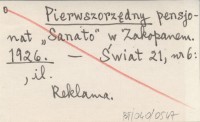 Pierwszorzędny pensjo-
nat „Sanato" w Zakopanem.
1926. — Świat 21, nr 6:
, il.
Reklama.